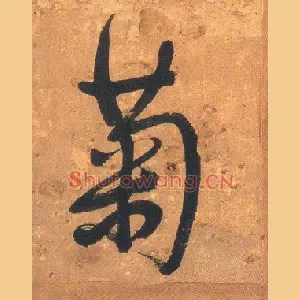 菊
Shufawang.CN